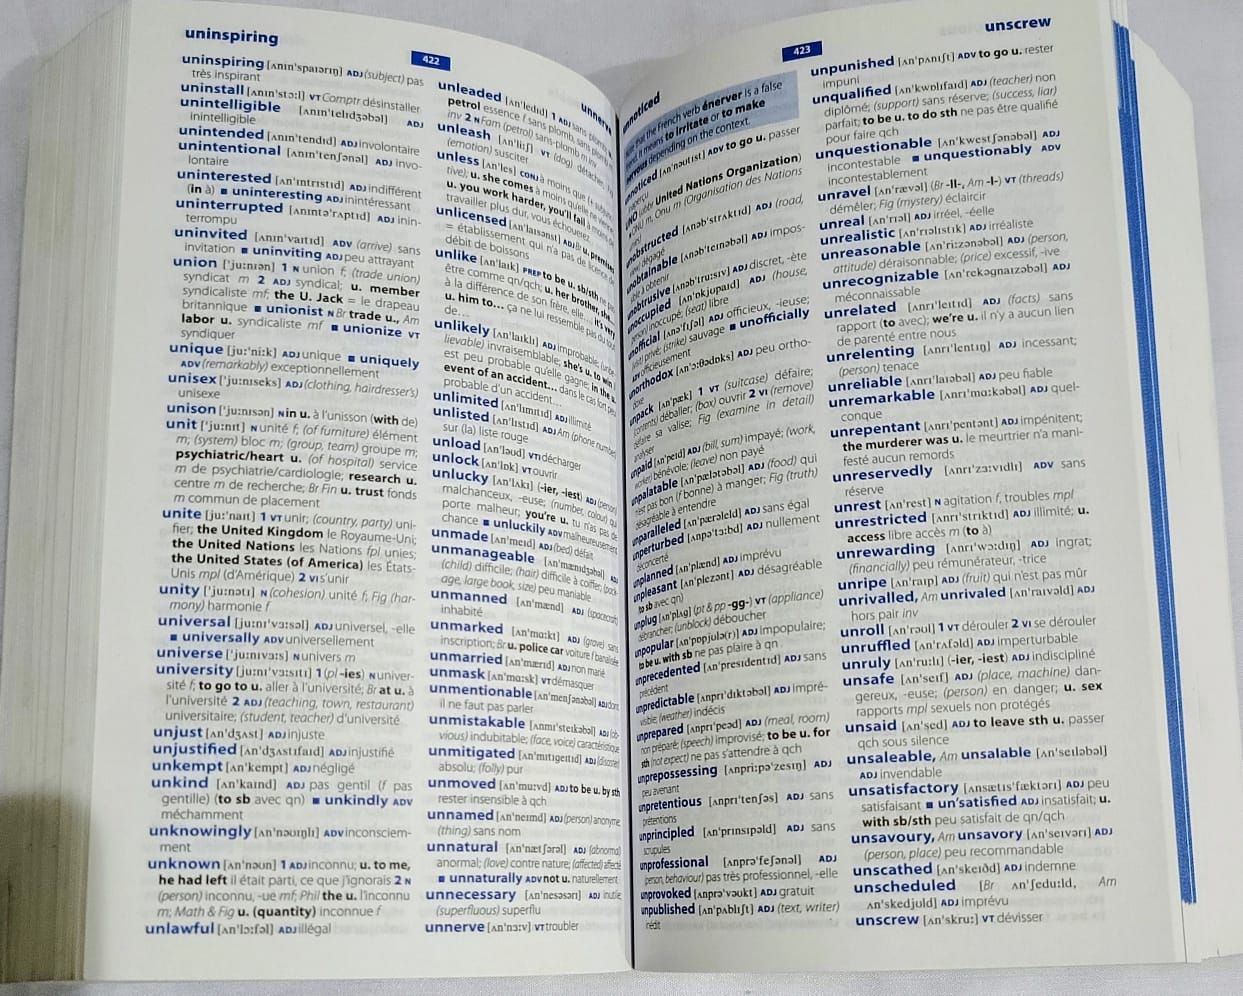 uninspiring
422
uninspiring [ʌnɪnˈspaɪərɪŋ] ADJ (subject) pas
très inspirant
uninstall [ʌnɪnˈstɔːl] VT Comptr désinstaller
unintelligible [ʌnɪnˈtelɪdʒəbəl] ADJ
inintelligible
unintended [ʌnɪnˈtendɪd] ADJ involontaire
unintentional [ʌnɪnˈtenʃənəl] ADJ invo-
lontaire
uninterested [ʌnˈɪntrɪstɪd] ADJ indifférent
(in à) ■ uninteresting ADJ inintéressant
uninterrupted [ʌnɪntəˈrʌptɪd] ADJ inin-
terrompu
uninvited [ʌnɪnˈvaɪtɪd] ADV (arrive) sans
invitation ■ uninviting ADJ peu attrayant
union [ˈjuːnɪən] 1 N union f; (trade union)
syndicat m 2 ADJ syndical; u. member
syndicaliste mf; the U. Jack = le drapeau
britannique ■ unionist N Br trade u., Am
labor u. syndicaliste mf ■ unionize VT
syndiquer
unique [juːˈniːk] ADJ unique ■ uniquely
ADV (remarkably) exceptionnellement
unisex [ˈjuːnɪseks] ADJ (clothing, hairdresser's)
unisexe
unison [ˈjuːnɪsən] N in u. à l'unisson (with de)
unit [ˈjuːnɪt] N unité f; (of furniture) élément
m; (system) bloc m; (group, team) groupe m;
psychiatric/heart u. (of hospital) service
m de psychiatrie/cardiologie; research u.
centre m de recherche; Br Fin u. trust fonds
m commun de placement
unite [juːˈnaɪt] 1 VT unir; (country, party) uni-
fier; the United Kingdom le Royaume-Uni;
the United Nations les Nations fpl unies;
the United States (of America) les États-
Unis mpl (d'Amérique) 2 VI s'unir
unity [ˈjuːnətɪ] N (cohesion) unité f; Fig (har-
mony) harmonie f
universal [juːnɪˈvɜːsəl] ADJ universel, -elle
■ universally ADV universellement
universe [ˈjuːnɪvɜːs] N univers m
university [juːnɪˈvɜːsɪtɪ] 1 (pl -ies) N univer-
sité f; to go to u. aller à l'université; Br at u. à
l'université 2 ADJ (teaching, town, restaurant)
universitaire; (student, teacher) d'université
unjust [ʌnˈdʒʌst] ADJ injuste
unjustified [ʌnˈdʒʌstɪfaɪd] ADJ injustifié
unkempt [ʌnˈkempt] ADJ négligé
unkind [ʌnˈkaɪnd] ADJ pas gentil (f pas
gentille) (to sb avec qn) ■ unkindly ADV
méchamment
unknowingly [ʌnˈnəʊɪŋlɪ] ADV inconsciem-
ment
unknown [ʌnˈnəʊn] 1 ADJ inconnu; u. to me,
he had left il était parti, ce que j'ignorais 2 N
(person) inconnu, -ue mf; Phil the u. l'inconnu
m; Math & Fig u. (quantity) inconnue f
unlawful [ʌnˈlɔːfəl] ADJ illégal
unnerve
unleaded [ʌnˈledɪd] 1 ADJ sans plomb; u.
petrol essence f sans plomb, sans-plomb m
inv 2 N Fam (petrol) sans-plomb m inv
unleash [ʌnˈliːʃ] VT (dog) détacher; Fig
(emotion) susciter
unless [ʌnˈles] CONJ à moins que (+ subjunc-
tive); u. she comes à moins qu'elle ne vienne;
u. you work harder, you'll fail à moins de
travailler plus dur, vous échouerez
unlicensed [ʌnˈlaɪsənst] ADJ Br u. premises
= établissement qui n'a pas de licence de
débit de boissons
unlike [ʌnˈlaɪk] PREP to be u. sb/sth ne pas
être comme qn/qch; u. her brother, she...
à la différence de son frère, elle...; it's very
u. him to... ça ne lui ressemble pas du tout
de...
unlikely [ʌnˈlaɪklɪ] ADJ improbable; (unbe-
lievable) invraisemblable; she's u. to win il
est peu probable qu'elle gagne; in the u.
event of an accident... dans le cas fort peu
probable d'un accident...
unlimited [ʌnˈlɪmɪtɪd] ADJ illimité
unlisted [ʌnˈlɪstɪd] ADJ Am (phone number)
sur (la) liste rouge
unload [ʌnˈləʊd] VTI décharger
unlock [ʌnˈlɒk] VT ouvrir
unlucky [ʌnˈlʌkɪ] (-ier, -iest) ADJ (person)
malchanceux, -euse; (number, colour) qui
porte malheur; you're u. tu n'as pas de
chance ■ unluckily ADV malheureusement
unmade [ʌnˈmeɪd] ADJ (bed) défait
unmanageable [ʌnˈmænɪdʒəbəl] ADJ
(child) difficile; (hair) difficile à coiffer; (pack-
age, large book, size) peu maniable
unmanned [ʌnˈmænd] ADJ (spacecraft)
inhabité
unmarked [ʌnˈmɑːkt] ADJ (grave) sans
inscription; Br u. police car voiture f banalisée
unmarried [ʌnˈmærɪd] ADJ non marié
unmask [ʌnˈmɑːsk] VT démasquer
unmentionable [ʌnˈmenʃənəbəl] ADJ dont
il ne faut pas parler
unmistakable [ʌnmɪˈsteɪkəbəl] ADJ (ob-
vious) indubitable; (face, voice) caractéristique
unmitigated [ʌnˈmɪtɪgeɪtɪd] ADJ (disaster)
absolu; (folly) pur
unmoved [ʌnˈmuːvd] ADJ to be u. by sth
rester insensible à qch
unnamed [ʌnˈneɪmd] ADJ (person) anonyme;
(thing) sans nom
unnatural [ʌnˈnætʃərəl] ADJ (abnormal)
anormal; (love) contre nature; (affected) affecté
■ unnaturally ADV not u. naturellement
unnecessary [ʌnˈnesəsərɪ] ADJ inutile;
(superfluous) superflu
unnerve [ʌnˈnɜːv] VT troubler
unnoticed
423
Note that the French verb énerver is a false
friend. It means to irritate or to make
nervous depending on the context.
unnoticed [ʌnˈnəʊtɪst] ADV to go u. passer
inaperçu
UNO (abbr United Nations Organization)
N ONU m, Onu m (Organisation des Nations
unies)
unobstructed [ʌnəbˈstrʌktɪd] ADJ (road,
view) dégagé
unobtainable [ʌnəbˈteɪnəbəl] ADJ impos-
sible à obtenir
unobtrusive [ʌnəbˈtruːsɪv] ADJ discret, -ète
unoccupied [ʌnˈɒkjʊpaɪd] ADJ (house,
person) inoccupé; (seat) libre
unofficial [ʌnəˈfɪʃəl] ADJ officieux, -ieuse;
(visit) privé; (strike) sauvage ■ unofficially
ADV officieusement
unorthodox [ʌnˈɔːθədɒks] ADJ peu ortho-
doxe
unpack [ʌnˈpæk] 1 VT (suitcase) défaire;
(contents) déballer; (box) ouvrir 2 VI (remove)
défaire sa valise; Fig (examine in detail)
analyser
unpaid [ʌnˈpeɪd] ADJ (bill, sum) impayé; (work,
worker) bénévole; (leave) non payé
unpalatable [ʌnˈpælətəbəl] ADJ (food) qui
n'est pas bon (f bonne) à manger; Fig (truth)
désagréable à entendre
unparalleled [ʌnˈpærəleld] ADJ sans égal
unperturbed [ʌnpəˈtɜːbd] ADJ nullement
déconcerté
unplanned [ʌnˈplænd] ADJ imprévu
unpleasant [ʌnˈplezənt] ADJ désagréable
(to sb avec qn)
unplug [ʌnˈplʌg] (pt & pp -gg-) VT (appliance)
débrancher; (unblock) déboucher
unpopular [ʌnˈpɒpjʊlə(r)] ADJ impopulaire;
to be u. with sb ne pas plaire à qn
unprecedented [ʌnˈpresɪdentɪd] ADJ sans
précédent
unpredictable [ʌnprɪˈdɪktəbəl] ADJ impré-
visible; (weather) indécis
unprepared [ʌnprɪˈpeəd] ADJ (meal, room)
non préparé; (speech) improvisé; to be u. for
sth (not expect) ne pas s'attendre à qch
unprepossessing [ʌnpriːpəˈzesɪŋ] ADJ
peu avenant
unpretentious [ʌnprɪˈtenʃəs] ADJ sans
prétentions
unprincipled [ʌnˈprɪnsɪpəld] ADJ sans
scrupules
unprofessional [ʌnprəˈfeʃənəl] ADJ
(person, behaviour) pas très professionnel, -elle
unprovoked [ʌnprəˈvəʊkt] ADJ gratuit
unpublished [ʌnˈpʌblɪʃt] ADJ (text, writer)
inédit
unscrew
unpunished [ʌnˈpʌnɪʃt] ADV to go u. rester
impuni
unqualified [ʌnˈkwɒlɪfaɪd] ADJ (teacher) non
diplômé; (support) sans réserve; (success, liar)
parfait; to be u. to do sth ne pas être qualifié
pour faire qch
unquestionable [ʌnˈkwestʃənəbəl] ADJ
incontestable ■ unquestionably ADV
incontestablement
unravel [ʌnˈrævəl] (Br -ll-, Am -l-) VT (threads)
démêler; Fig (mystery) éclaircir
unreal [ʌnˈrɪəl] ADJ irréel, -éelle
unrealistic [ʌnrɪəˈlɪstɪk] ADJ irréaliste
unreasonable [ʌnˈriːzənəbəl] ADJ (person,
attitude) déraisonnable; (price) excessif, -ive
unrecognizable [ʌnˈrekəgnaɪzəbəl] ADJ
méconnaissable
unrelated [ʌnrɪˈleɪtɪd] ADJ (facts) sans
rapport (to avec); we're u. il n'y a aucun lien
de parenté entre nous
unrelenting [ʌnrɪˈlentɪŋ] ADJ incessant;
(person) tenace
unreliable [ʌnrɪˈlaɪəbəl] ADJ peu fiable
unremarkable [ʌnrɪˈmɑːkəbəl] ADJ quel-
conque
unrepentant [ʌnrɪˈpentənt] ADJ impénitent;
the murderer was u. le meurtrier n'a mani-
festé aucun remords
unreservedly [ʌnrɪˈzɜːvɪdlɪ] ADV sans
réserve
unrest [ʌnˈrest] N agitation f, troubles mpl
unrestricted [ʌnrɪˈstrɪktɪd] ADJ illimité; u.
access libre accès m (to à)
unrewarding [ʌnrɪˈwɔːdɪŋ] ADJ ingrat;
(financially) peu rémunérateur, -trice
unripe [ʌnˈraɪp] ADJ (fruit) qui n'est pas mûr
unrivalled, Am unrivaled [ʌnˈraɪvəld] ADJ
hors pair inv
unroll [ʌnˈrəʊl] 1 VT dérouler 2 VI se dérouler
unruffled [ʌnˈrʌfəld] ADJ imperturbable
unruly [ʌnˈruːlɪ] (-ier, -iest) ADJ indiscipliné
unsafe [ʌnˈseɪf] ADJ (place, machine) dan-
gereux, -euse; (person) en danger; u. sex
rapports mpl sexuels non protégés
unsaid [ʌnˈsed] ADJ to leave sth u. passer
qch sous silence
unsaleable, Am unsalable [ʌnˈseɪləbəl]
ADJ invendable
unsatisfactory [ʌnsætɪsˈfæktərɪ] ADJ peu
satisfaisant ■ un'satisfied ADJ insatisfait; u.
with sb/sth peu satisfait de qn/qch
unsavoury, Am unsavory [ʌnˈseɪvərɪ] ADJ
(person, place) peu recommandable
unscathed [ʌnˈskeɪðd] ADJ indemne
unscheduled [Br ʌnˈʃedjuːld, Am
ʌnˈskedjʊld] ADJ imprévu
unscrew [ʌnˈskruː] VT dévisser